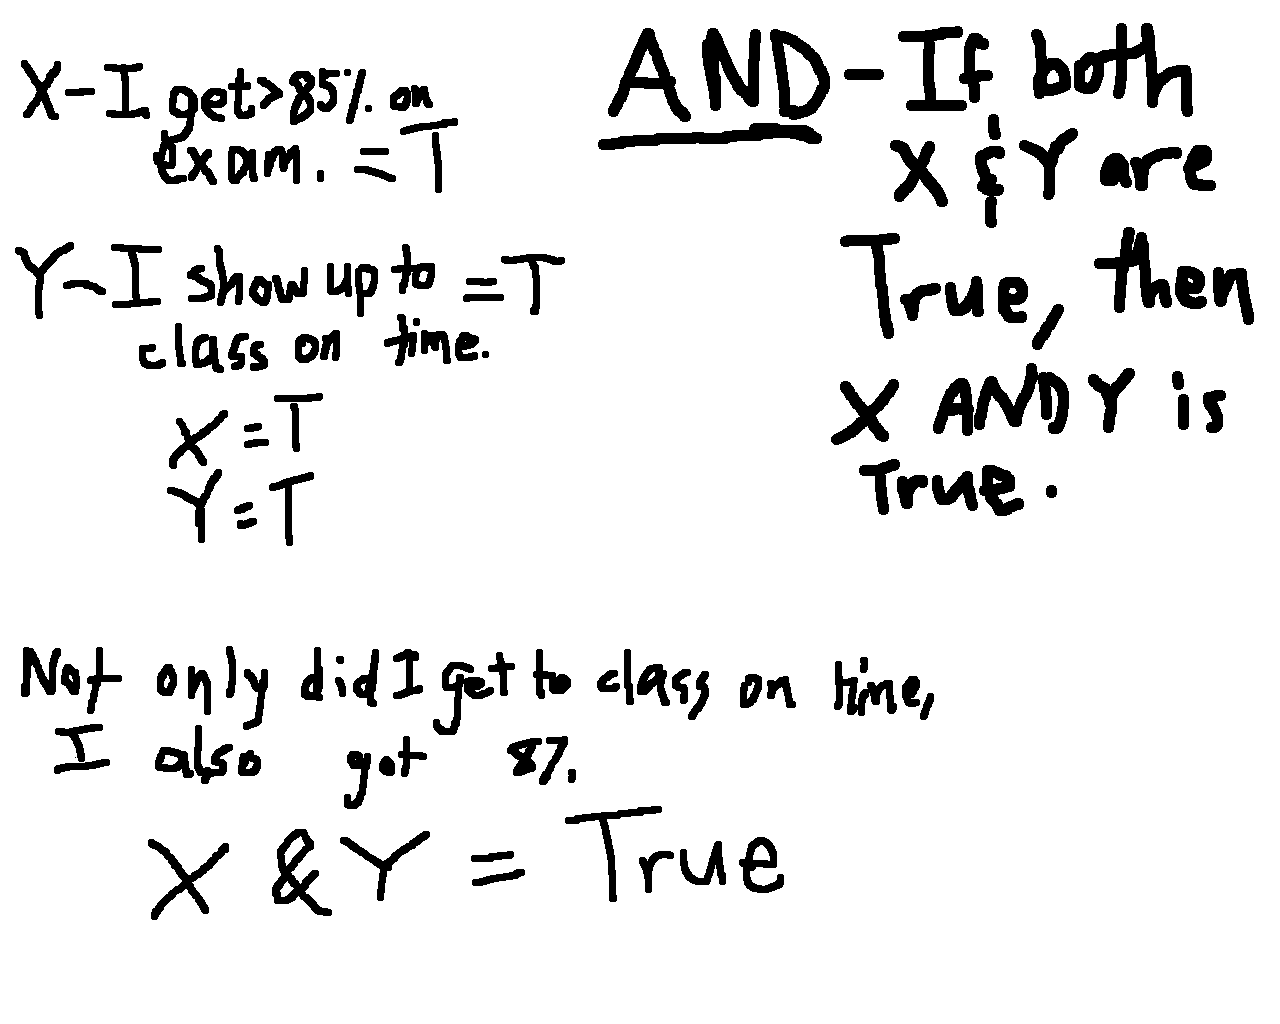 X-I get>85% on
exam. = T
Y-I show up to = T
class on time.
X = T
Y = T
AND-If both
X & Y are
True, then
X AND Y is
True.
Not only did I get to class on time,
I also got 87.
X & Y = True